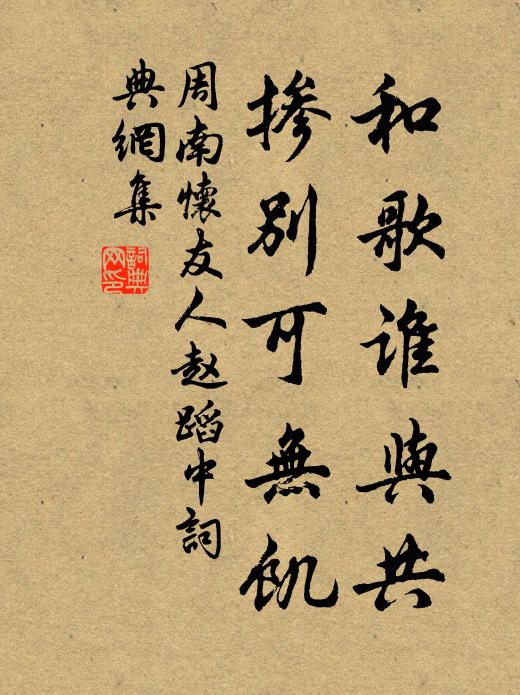 和歌谁與共
掺别可無飢
周南懷友人赵蹈中詞
典網集
詞典
网印